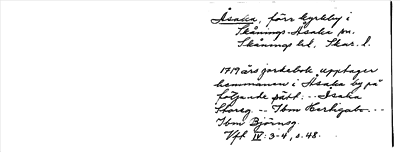 Åsaka, förr kyrkby i
Skånings-Åsaka sn.
Skånings hd, Skar. l.
1719 års jordebok upptager
hemmanen i Åsaka by på
följande sätt: -- Åsaka
Storeg. -- Ibm Herligabo. --
Ibm Björnsg.
Vgl IV: 3-4, s. 48.